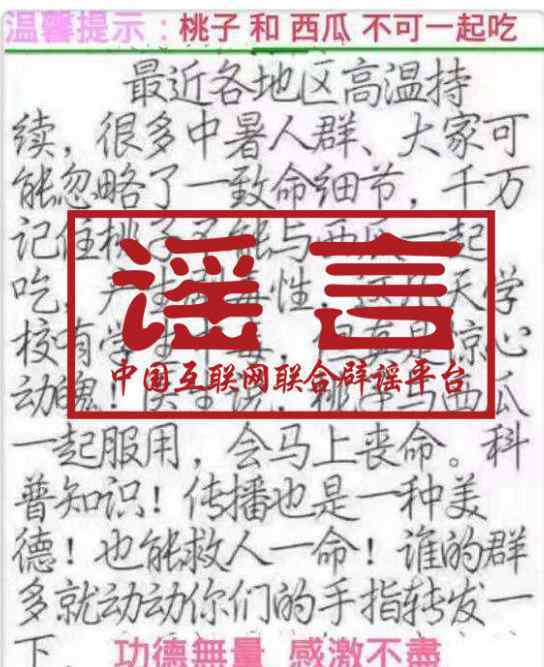 温馨提示：桃子 和 西瓜 不可一起吃
最近各地区高温持
续，很多中暑人群、大家可
能忽略了一致命细节，千万
记住桃子不能与西瓜一起
吃，产生 毒性，这几天学
校有学生中毒，但真是惊心
动魄！医生说，桃子与西瓜
一起服用，会马上丧命。科
普知识！传播也是一种美
德！也能救人一命！谁的群
多就动动你们的手指转发一
下。 功德無量 感激不盡
谣言
中国互联网联合辟谣平台